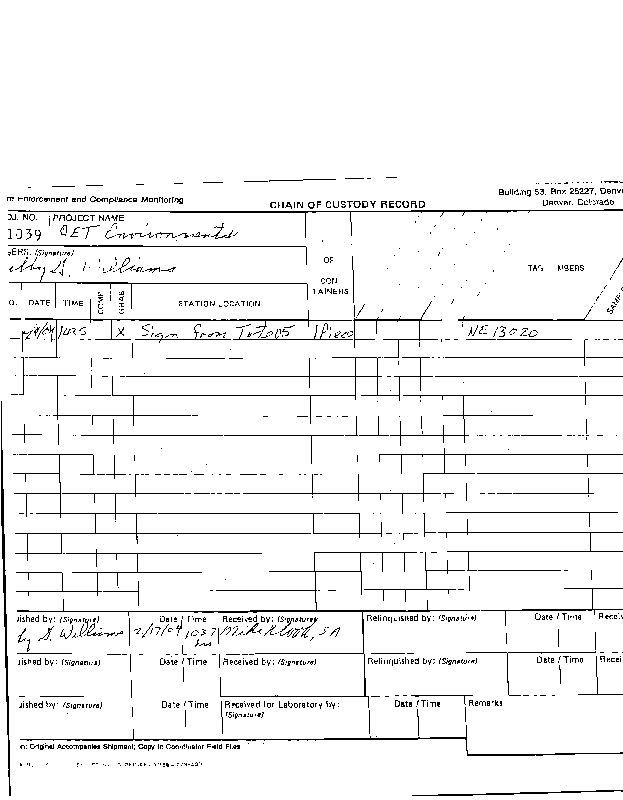 Enforcement and Compliance Monitoring
Building 53, Box 25227, Denv
CHAIN OF CUSTODY RECORD
Denver, Colorado
NO. PROJECT NAME
1039 CET Environments
ERS: (Signature)
S. Williams
OF
CON
TAINERS
TAG MBERS
DATE TIME COMP GRAB STATION LOCATION
X Sign from 1 Piece NE 13020
ished by: (Signature) Date / Time Received by: (Signature) Relinquished by: (Signature) Date / Time Recei
by S. Williams 2/17/04 1037 hrs Mike SA
ished by: (Signature) Date / Time Received by: (Signature) Relinquished by: (Signature) Date / Time Recei
ished by: (Signature) Date / Time Received for Laboratory by: Date / Time Remarks
(Signature)
n: Original Accompanies Shipment; Copy to Coordinator Field Files